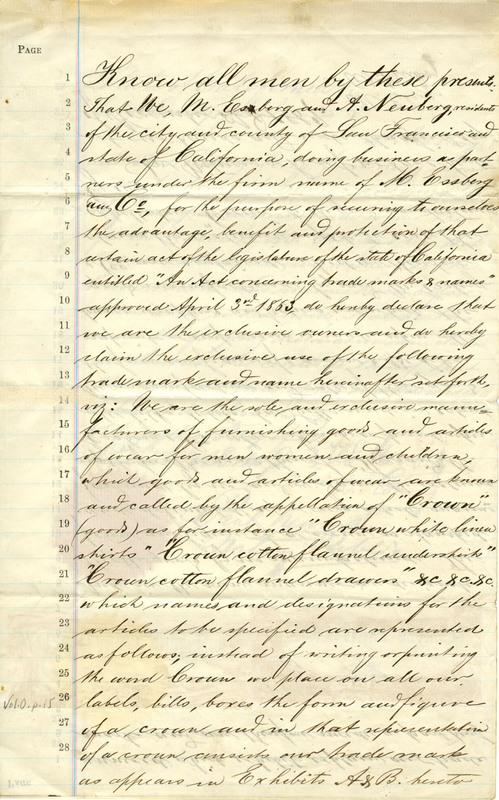 PAGE
1 Know all men by these presents.
2 That We, M. Essberg and A. Neuberg, residents
3 of the city and county of San Francisco and
4 state of California, doing business as part
5 ners under the firm name of M. Essberg
6 and Co, for the purpose of securing to ourselves
7 the advantage, benefit and protection of that
8 certain act of the legislature of the state of California
9 entitled "An Act concerning trade marks & names"
10 approved April 3rd 1863, do hereby declare that
11 we are the exclusive owners and do hereby
12 claim the exclusive use of the following
13 trade mark and name hereinafter set forth,
14 viz: We are the sole and exclusive manu=
15 facturers of furnishing goods and articles
16 of wear for men women and children,
17 which goods and articles of wear are known
18 and called by the appellation of "Crown"
19 (goods) as for instance "Crown white linen
20 shirts" "Crown cotton flannel undershirts"
21 "Crown cotton flannel drawers" &c &c &c
22 which names and designations for the
23 articles to be specified are represented
24 as follows; instead of writing or printing
25 the word Crown we place on all our
26 labels, bills, boxes the form and figure
27 of a crown and in that representation
28 of a crown consists our trade mark
as appears in Exhibits A & B. hereto
Vol.O.p.15